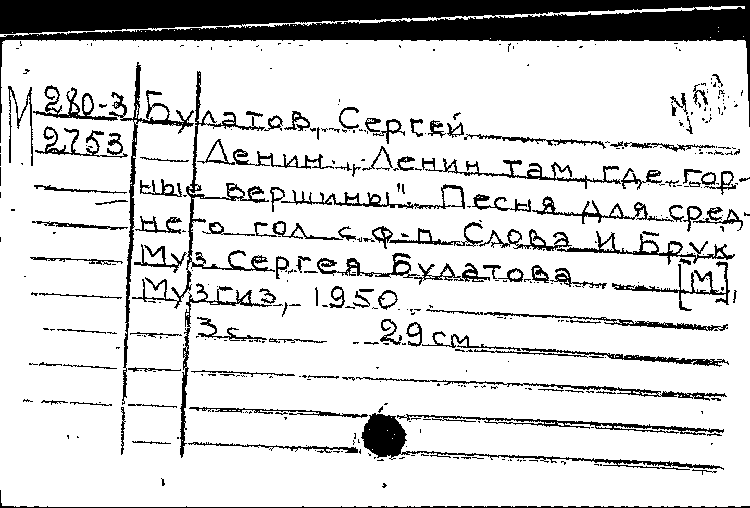 М 280-3
2753
Булатов, Сергей
Ленин. „Ленин там, где гор-
ные вершины". Песня для сред-
него гол. с ф-п. Слова И. Брук
Муз. Сергея Булатова [М.],
Музгиз, 1950
3 с. 29 см.